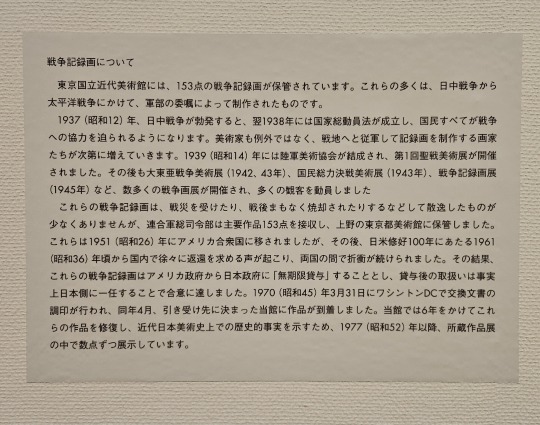 戦争記録画について
東京国立近代美術館には、153点の戦争記録画が保管されています。これらの多くは、日中戦争から
太平洋戦争にかけて、軍部の委嘱によって制作されたものです。
1937（昭和12）年、日中戦争が勃発すると、翌1938年には国家総動員法が成立し、国民すべてが戦争
への協力を迫られるようになります。美術家も例外ではなく、戦地へと従軍して記録画を制作する画家
たちが次第に増えていきます。1939（昭和14）年には陸軍美術協会が結成され、第1回聖戦美術展が開催
されました。その後も大東亜戦争美術展（1942、43年）、国民総力決戦美術展（1943年）、戦争記録画展
（1945年）など、数多くの戦争画展が開催され、多くの観客を動員しました
これらの戦争記録画は、戦災を受けたり、戦後まもなく焼却されたりするなどして散逸したものが
少なくありませんが、連合軍総司令部は主要作品153点を接収し、上野の東京都美術館に保管しました。
これらは1951（昭和26）年にアメリカ合衆国に移されましたが、その後、日米修好100年にあたる1961
（昭和36）年頃から国内で徐々に返還を求める声が起こり、両国の間で折衝が続けられました。その結果、
これらの戦争記録画はアメリカ政府から日本政府に「無期限貸与」することとし、貸与後の取扱いは事実
上日本側に一任することで合意に達しました。1970（昭和45）年3月31日にワシントンDCで交換文書の
調印が行われ、同年4月、引き受け先に決まった当館に作品が到着しました。当館では6年をかけてこれ
らの作品を修復し、近代日本美術史上での歴史的事実を示すため、1977（昭和52）年以降、所蔵作品展
の中で数点ずつ展示しています。